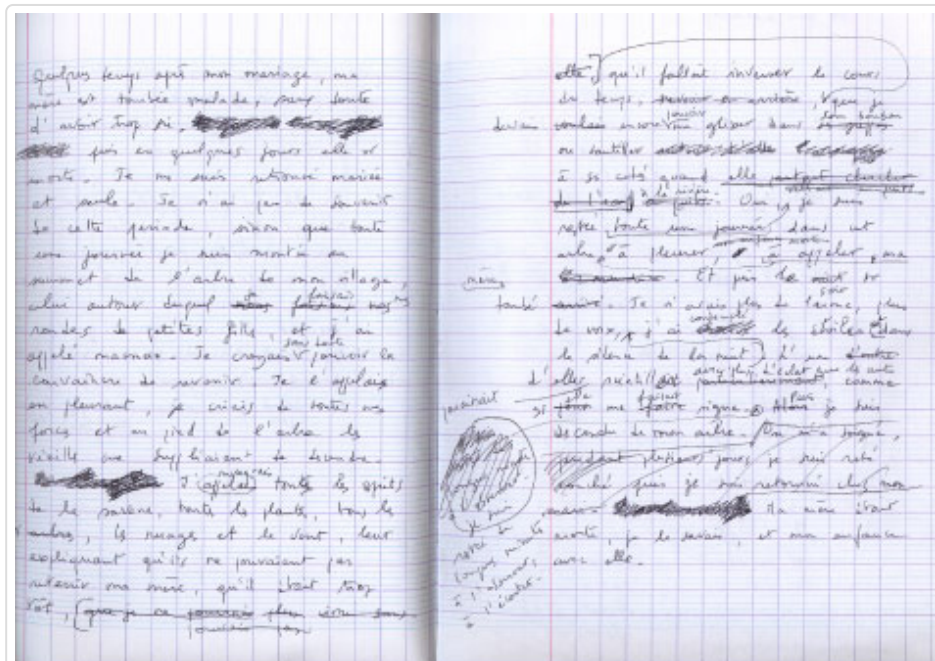 Quelques temps après mon mariage, ma
mère est tombée malade, sans doute
d'avoir trop ri.
puis en quelques jours elle est
morte. Je me suis retrouvée mariée
et seule. Je n'ai pas de souvenir
de cette période, sinon que toute
une journée je suis montée au
sommet de l'arbre de mon village,
celui autour duquel faisait nos
rondes de petites filles, et j'ai
appelé maman. Je croyais sans doute pouvoir la
convaincre de revenir. Je l'appelais
en pleurant, je criais de toutes mes
forces et au pied de l'arbre les
vieilles me suppliaient de descendre.
J' toute les esprits
de la savane, toutes les plantes, tous les
arbres, les nuages et le vent, leur
expliquant qu'ils ne pouvaient pas
retenir ma mère, qu'il était trop
tôt, que je ne pourrais plus vivre sans
pouvais pas
elle, qu'il fallait inverser le cours
du temps, revenir en arrière, que je
devais pouvoir encore glisser dans
ou sautiller
à ses côtés quand elle partait chercher
de l'eau à la rivière. Oui, je suis
restée toute une journée dans cet
arbre, à pleurer, à appeler ma
mère. Et puis le soir est
tombé. Je n'avais plus de larme, plus
de voix, j'ai contemplé les étoiles dans
le silence de la nuit. L'une
d'elles avec plus d'éclat que les autres, comme
si elle me faisait signe. Puis je suis
descendue de mon arbre. On m'a soignée,
pendant plusieurs jours je suis restée
couchée puis je suis retournée chez mon
mari. Ma mère était
morte, je le savais, et mon enfance
avec elle.
paraissait
je suis
restée de
longues minutes
à l'observer,
à l'écouter.